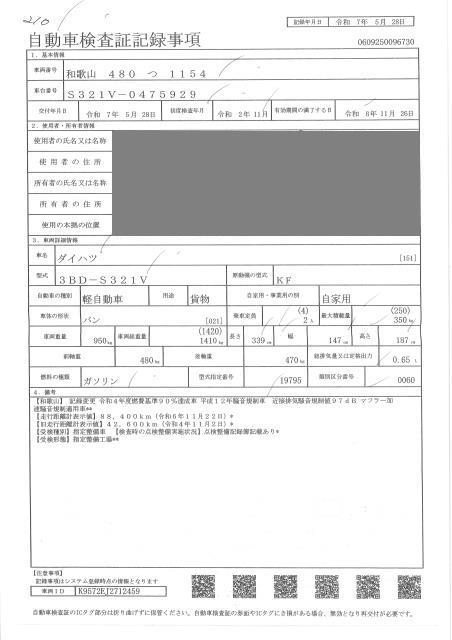 210
記録年月日 令和 7年 5月 28日
自動車検査証記録事項
0609250096730
1. 基本情報
車両番号 和歌山 480 つ 1154
車台番号 S321V-0475929
交付年月日 令和 7年 5月 28日 初度検査年月 令和 2年 11月 有効期間の満了する日 令和 8年 11月 26日
2. 使用者・所有者情報
使用者の氏名又は名称
使用者の住所
所有者の氏名又は名称
所有者の住所
使用の本拠の位置
3. 車両詳細情報
車名 ダイハツ [151]
型式 3BD-S321V 原動機の型式 KF
自動車の種別 軽自動車 用途 貨物 自家用・事業用の別 自家用
車体の形状 バン [021] 乗車定員 (4) 2人 最大積載量 (250) 350kg
車両重量 950kg 車両総重量 (1420) 1410kg 長さ 339cm 幅 147cm 高さ 187cm
前軸重 480kg 後軸重 470kg 総排気量又は定格出力 0.65L
燃料の種類 ガソリン 型式指定番号 19795 類別区分番号 0060
4. 備考
【和歌山】 記録変更 令和4年度燃費基準90%達成車 平成12年騒音規制車 近接排気騒音規制値97dB マフラー加
速騒音規制適用車**
【走行距離計表示値】88,400km(令和6年11月22日)*
【旧走行距離計表示値】42,600km(令和4年11月2日)*
【受検種別】指定整備車 【検査時の点検整備実施状況】点検整備記録簿記載あり*
【受検形態】指定整備工場**
【注意事項】
記録事項はシステム登録時点の情報となります
車両ID K9572EJ2712459
自動車検査証のICタグ部分は折り曲げずに保管ください。自動車検査証の券面やICタグにき損がある場合、無効となり再交付が必要です。